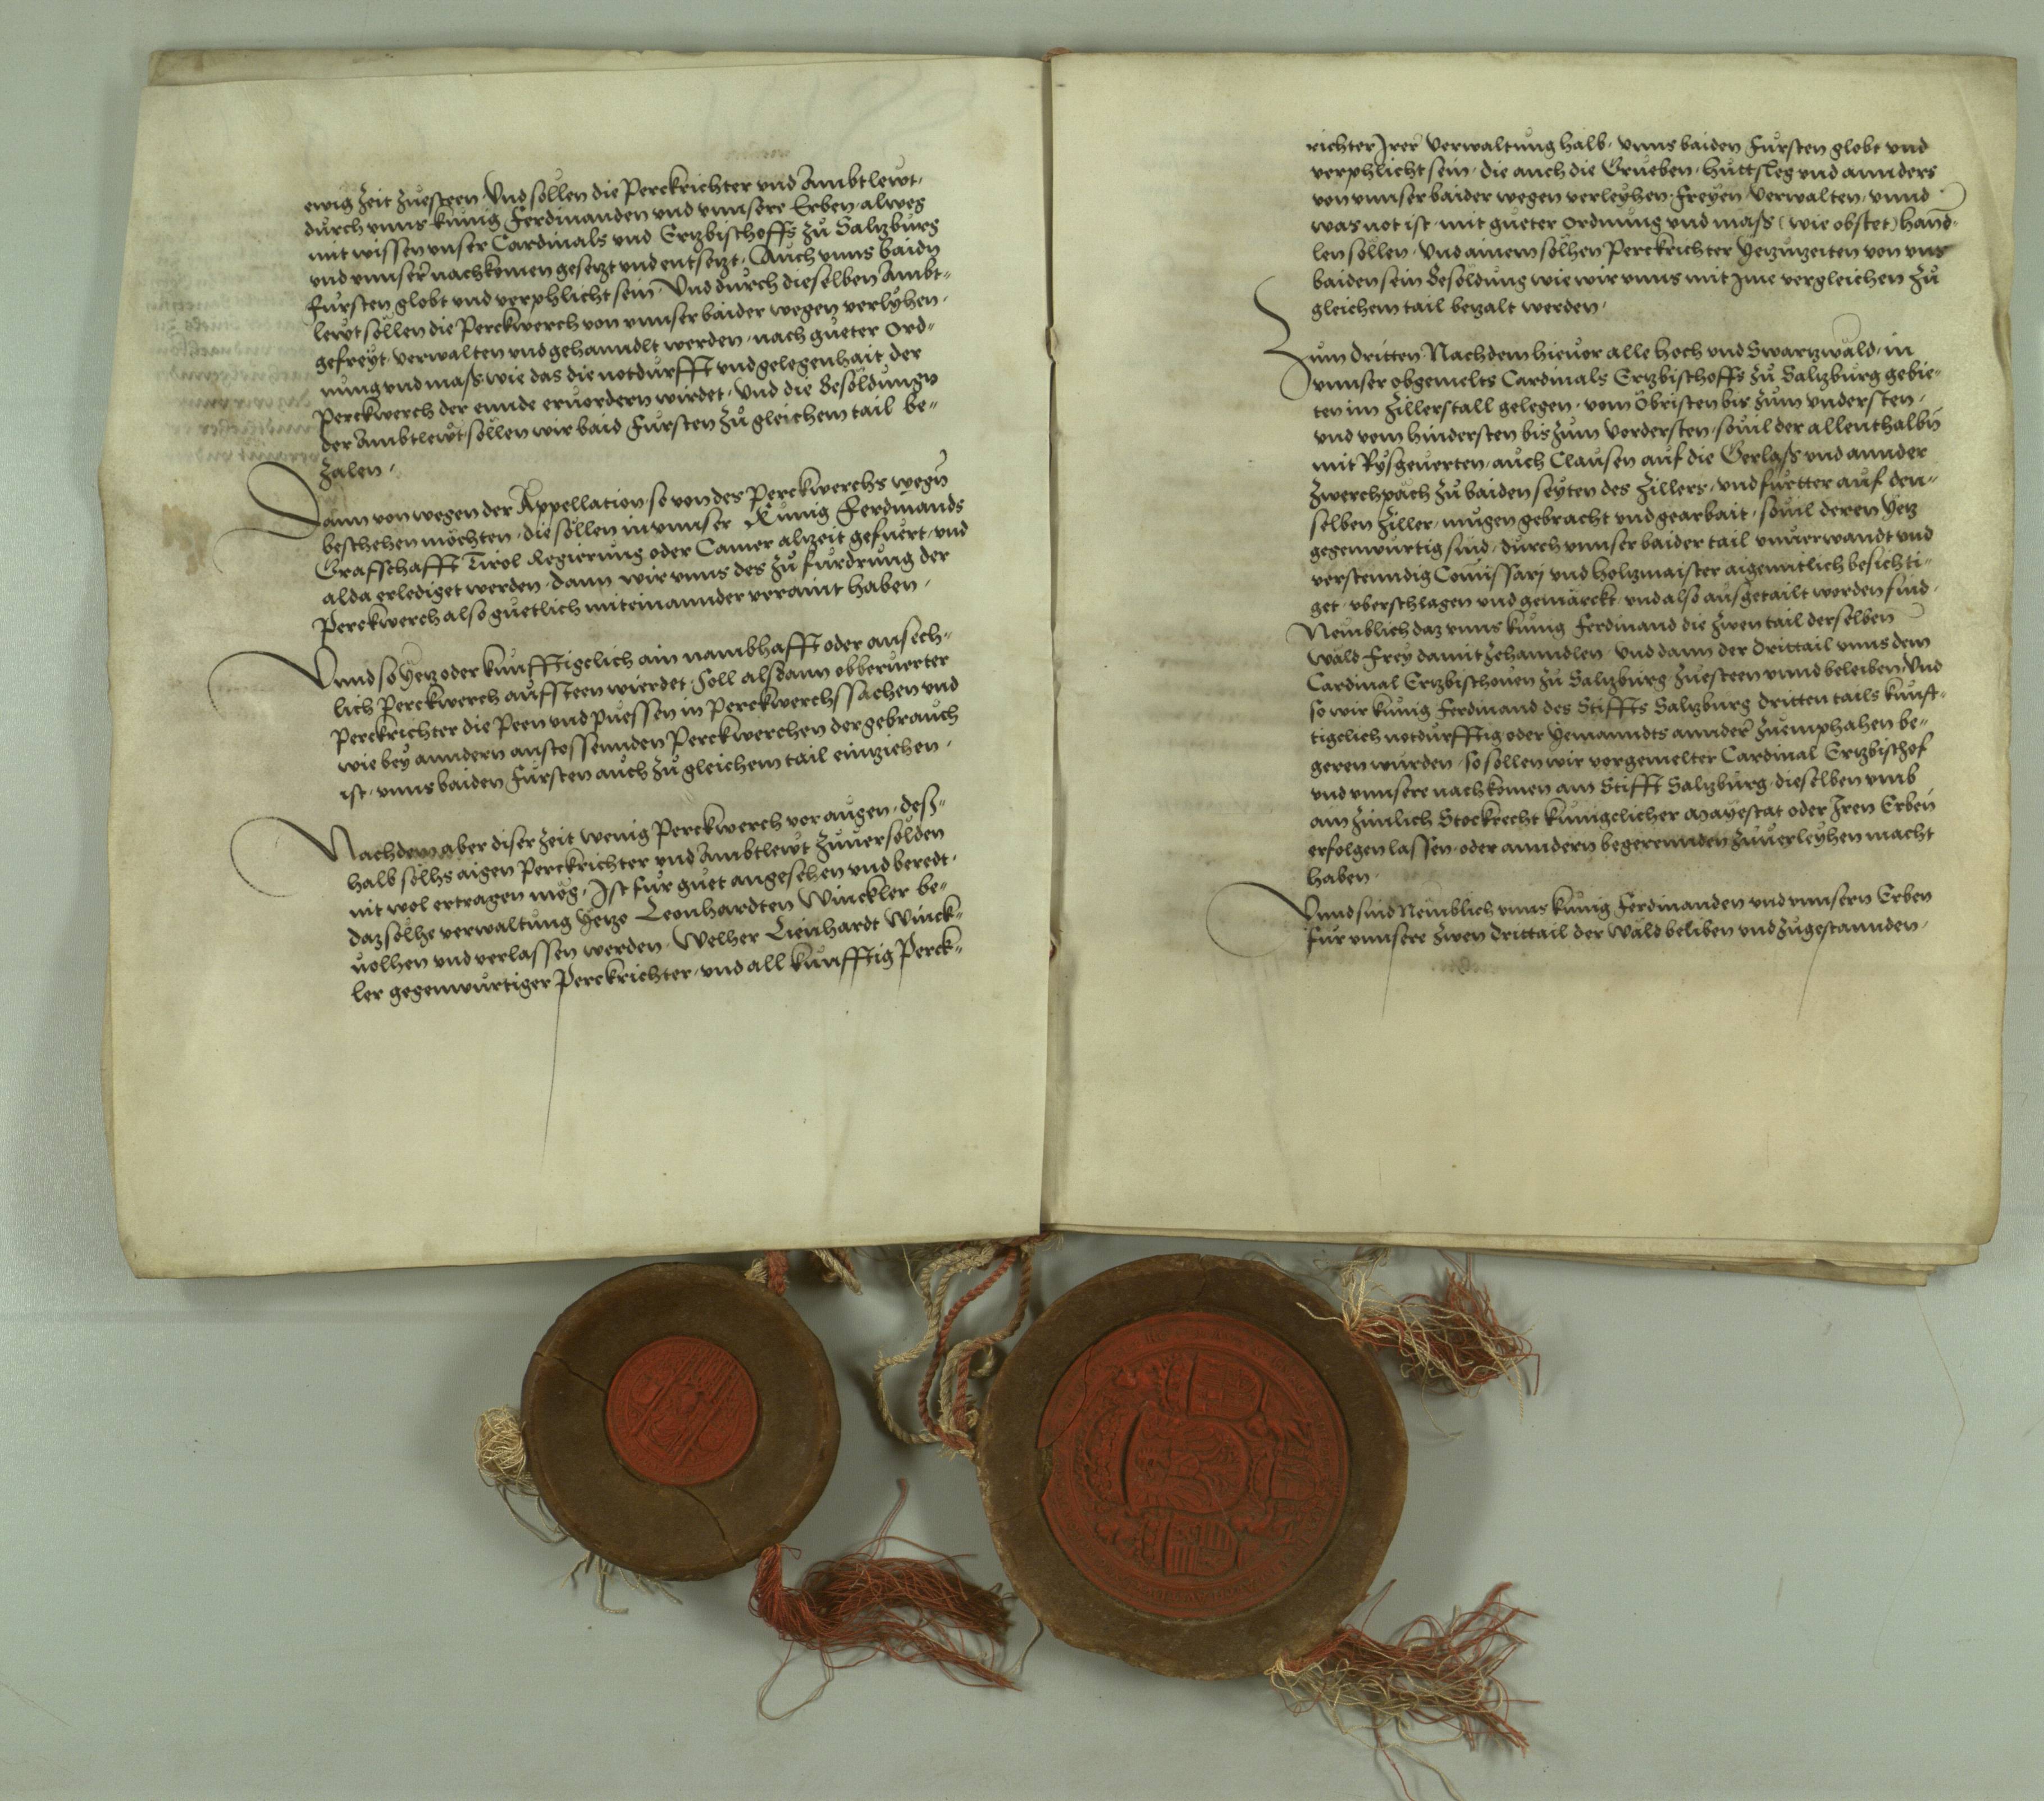 ewig Zeit zuesteen. Und sollen die Perckrichter und Ambtlewt,
durch unns kunig Ferdinanden und unnsere Erben, alweg
mit wissen unser Cardinals und Ertzbischoffs zu Saltzburg
und unnserer nachkomen gesetzt und entsetzt. Auch unns baidn
Fursten globt und verphlicht sein. Und durch dieselben Ambt-
lewt sollen die Perckwerch von unnser baider wegen verlyhen,
gefreyt, verwalten und gehanndlt werden, nach gueter Ord-
nung und maß wie das die notdurfft und gelegenhait der
Perckwerch der ennde ervordern wirdet. Und die Besoldungn
der Ambtlewt sollen wir baid Fursten zu gleichem tail be-
zalen.
Dann von wegen der Appellation so von des Perckwerchs wegn
beschehen möchten, die sollen in unnser Kunig Ferdinands
Grafschafft Tirol Regierung oder Camer alzeit gefuert, und
alda erlediget werden. dann wir unns des zu furdrung der
Perckwerch also guetlich miteinannder veraint haben.
Unnd so yetz oder kunfftigclich ain nambhafft oder ansech-
lich Perckwerch auffsteen wierdet, Soll alsdann obberuerter
Perckrichter die Peen und puessen in Perckwerchssachen und
wie bey anndern anstossennden Perckwerchen der gebrauch
ist, unns baiden Fursten auch zu gleichem tail einziehen.
Nachdem aber diser Zeit wenig Perckwerch vor augen, deß-
halb solhs aigen Perckrichter und Ambtlewt zuversolden
nit wol ertragen mög, Ist fur guet angesehen und beredt,
daz solhe verwaltung yetzo Leonhardten Winckler be-
volhen und verlassen werden. Welher Lienhardt Winck-
ler gegenwurtiger Perckrichter, und all kunfftig Perck-
richter Irer verwaltung halb, unns baiden Fursten globt und
verphlicht sein, die auch die Grueben, huttsleg und annders
von unnser baider wegen verleyhen, Freyen, verwalten, unnd
was not ist, mit gueter ordnung und maß (wie obstet) hand-
len sollen. Und ainem solhen Perckrichter yetzuzeiten von uns
baiden sein Besoldung wie wir unns mit Ime vergleichen zu
gleichem tail bezalt werden.
Zum dritten. Nachdem hievor alle hoch und Swartzwäld, in
unnser obgemelts Cardinals Ertzbischoffs zu Saltzburg gebie-
ten im Zillerstall gelegen, vom Obristen bis zum understen,
und vom hindersten bis zum Vordersten, sovil der allenthalbn
mit Rysgeverten, auch Clausen auf die Gerlaß und annder
Zwerchpäch zu baiden seyten des Zillers, und furtter auf den-
selben Ziller, mugen gebracht und gearbait, sovil deren yetz
gegenwurtig sind, durch unnser baider tail unverwandt und
verstenndig Comissarj und holtzmaister aigentlich besichti-
get, uberschlagen und gemärckt, und also ausgetailt worden sind.
Nemblich daz unns kunig Ferdinand die zwen tail derselben
Wäld Frey damit zehanndlen und dann der drittail unns dem
Cardinal Ertzbischoven zu Saltzburg zuesteen unnd beleiben. Und
so wir kunig Ferdinand des Stiffts Saltzburg dritten tails kunff-
tigclich notdurfftig oder yemanndts annder zuemphahen be-
geren wurden, so sollen wir vorgemelter Cardinal Ertzbischof
und unnsere nachkomen am Stifft Saltzburg, dieselben umb
ain zimlich Stockrecht kunigclicher Mayestat oder Iren Erben
erfolgen lassen, oder anndern begerennden zuverleyhen macht
haben.
Unnd sind Nemblich unns kunig Ferdinanden und unnsern Erben
fur unnsere zwen drittail der Wäld beliben und zugestannden.